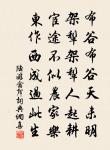 布谷布谷天未明
架犂架犂人起耕
宦途不似農家樂
東作西成過此生
陸游禽言詞典網集